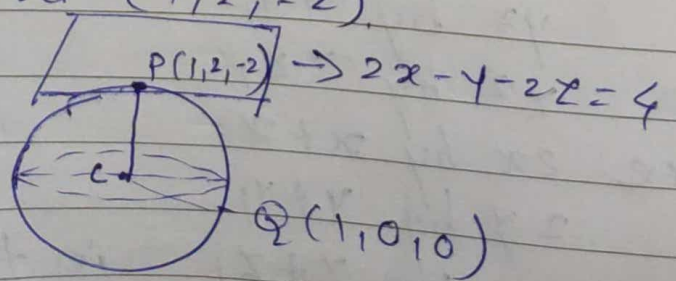 (1, 2, -2).
P(1,2,-2) → 2x-y-2z=4
C
Q(1,0,0)